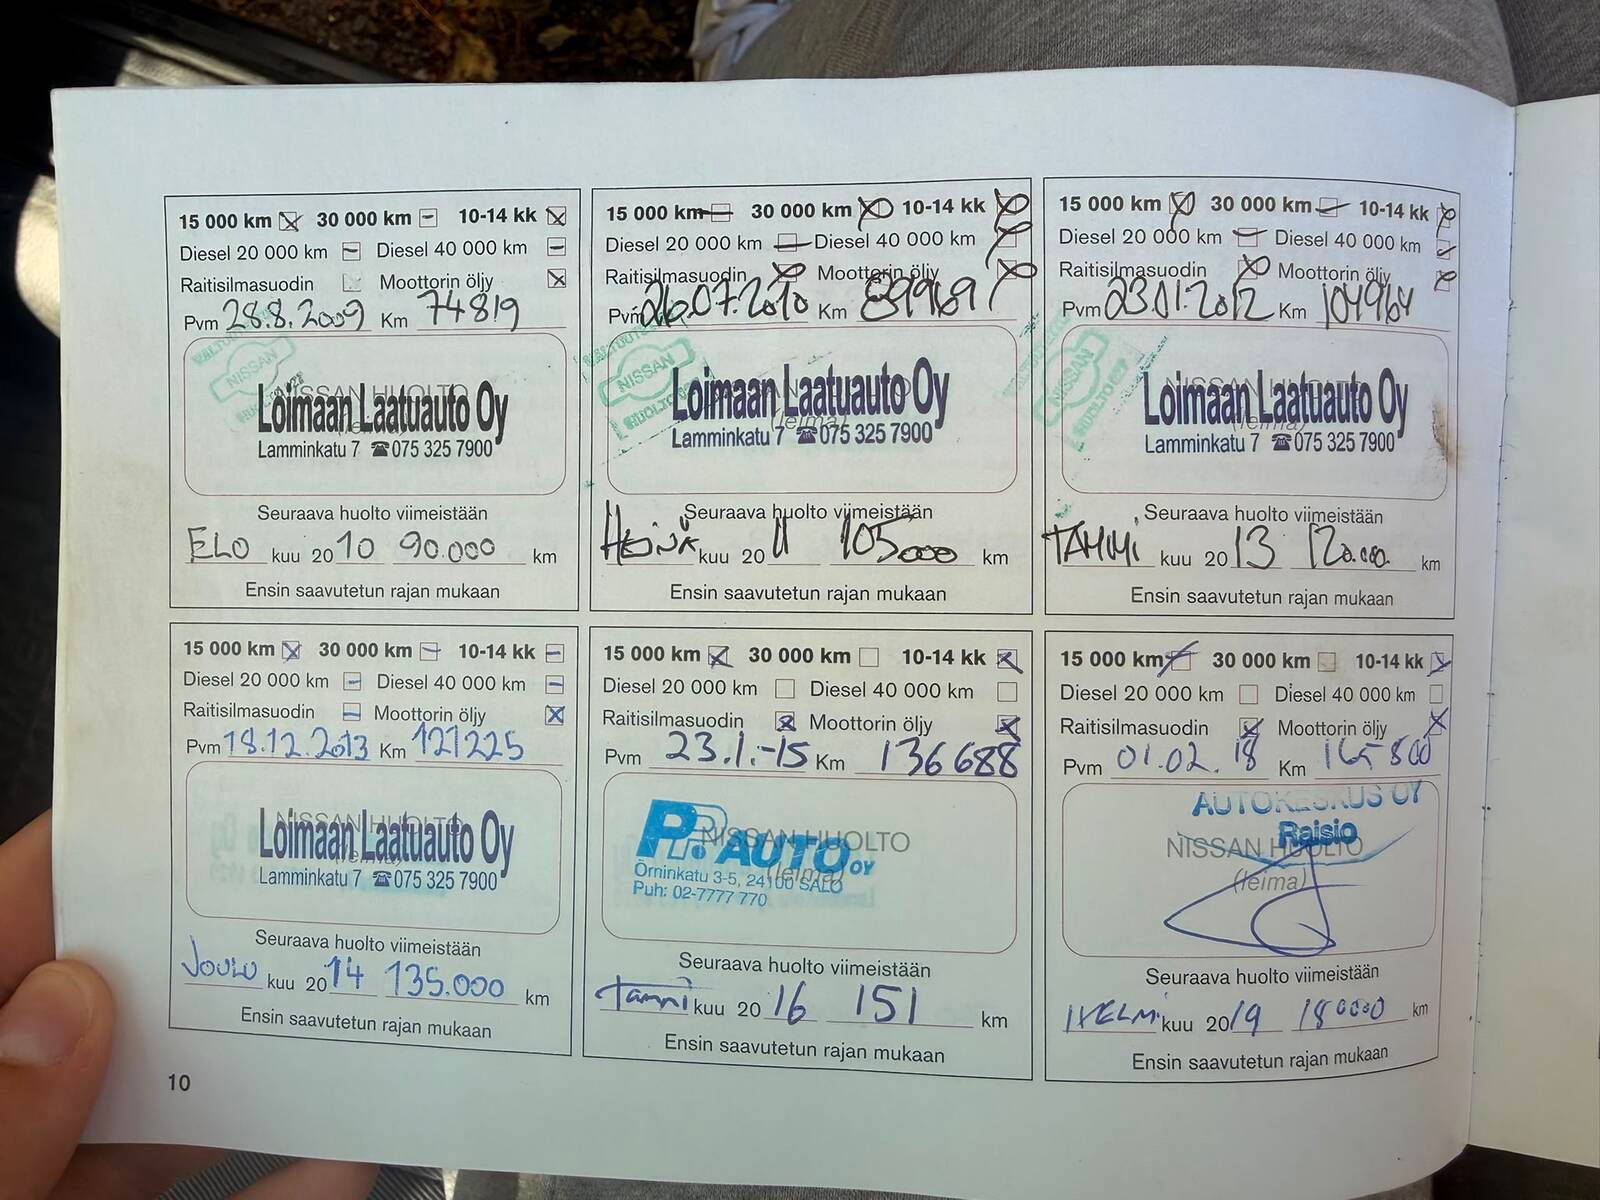 15 000 km 30 000 km 10-14 kk
Diesel 20 000 km Diesel 40 000 km
Raitisilmasuodin Moottorin öljy
Pvm 28.8.2009 Km 74819
NISSAN
NISSAN HUOLTO
Loimaan Laatuauto Oy
(leima)
Lamminkatu 7 ☎075 325 7900
Seuraava huolto viimeistään
ELO kuu 2010 90.000 km
Ensin saavutetun rajan mukaan
15 000 km 30 000 km 10-14 kk
Diesel 20 000 km Diesel 40 000 km
Raitisilmasuodin Moottorin öljy
Pvm 26.07.2010 Km 89969
NISSAN
HUOLTO
Loimaan Laatuauto Oy
(leima)
Lamminkatu 7 ☎075 325 7900
Seuraava huolto viimeistään
HEINÄ kuu 2011 105000 km
Ensin saavutetun rajan mukaan
15 000 km 30 000 km 10-14 kk
Diesel 20 000 km Diesel 40 000 km
Raitisilmasuodin Moottorin öljy
Pvm 23.01.2012 Km 104964
NISSAN
HUOLTO
Loimaan Laatuauto Oy
(leima)
Lamminkatu 7 ☎075 325 7900
Seuraava huolto viimeistään
TAMMI kuu 2013 120.000. km
Ensin saavutetun rajan mukaan
15 000 km 30 000 km 10-14 kk
Diesel 20 000 km Diesel 40 000 km
Raitisilmasuodin Moottorin öljy
Pvm 18.12.2013 Km 121225
NISSAN HUOLTO
Loimaan Laatuauto Oy
(leima)
Lamminkatu 7 ☎075 325 7900
Seuraava huolto viimeistään
JOULU kuu 2014 135.000 km
Ensin saavutetun rajan mukaan
15 000 km 30 000 km 10-14 kk
Diesel 20 000 km Diesel 40 000 km
Raitisilmasuodin Moottorin öljy
Pvm 23.1.-15 Km 136688
NISSAN HUOLTO
PP. AUTO OY
(leima)
Örninkatu 3-5, 24100 SALO
Puh: 02-7777 770
Seuraava huolto viimeistään
Tammi kuu 2016 151 km
Ensin saavutetun rajan mukaan
15 000 km 30 000 km 10-14 kk
Diesel 20 000 km Diesel 40 000 km
Raitisilmasuodin Moottorin öljy
Pvm 01.02.18 Km 165800
AUTOKESKUS OY
Raisio
NISSAN HUOLTO
(leima)
Seuraava huolto viimeistään
HELMI kuu 2019 180000 km
Ensin saavutetun rajan mukaan
10